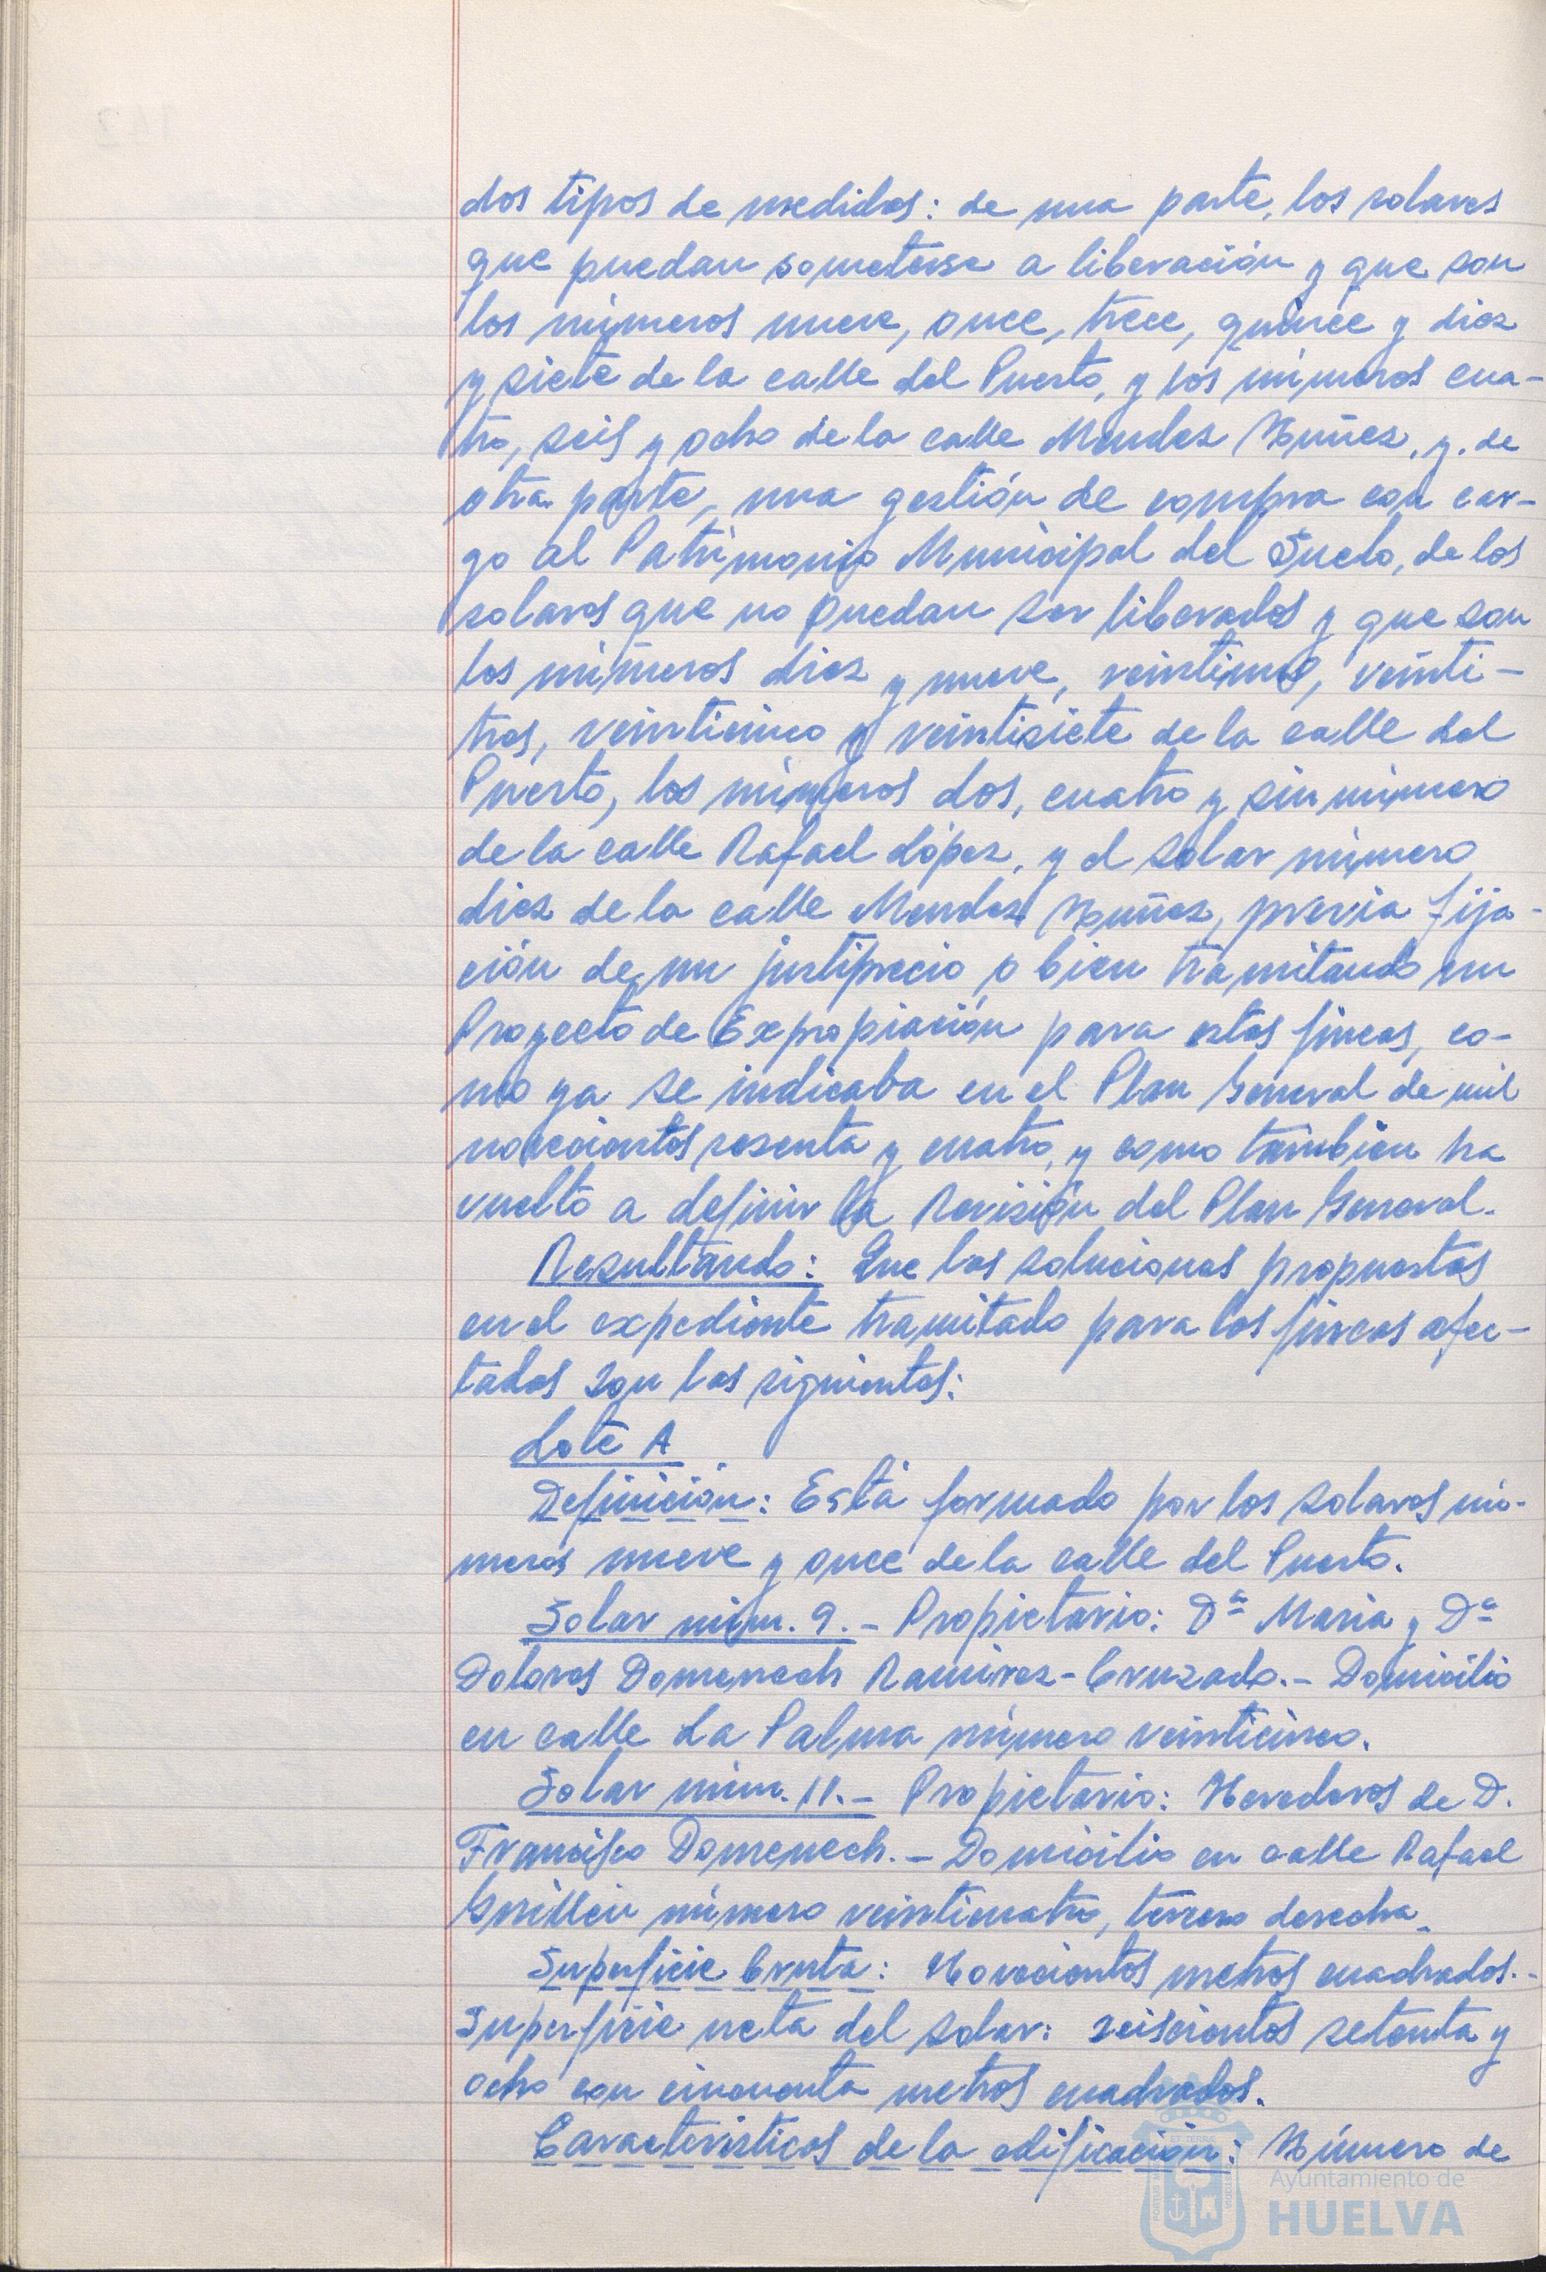 dos tipos de medidas: de una parte, los solares
que puedan someterse a liberación y que son
los números nueve, once, trece, quince y diez
y siete de la calle del Puerto, y los números cua-
tro, seis y ocho de la calle Mendez Nuñez, y, de
otra parte, una gestión de compra con car-
go al Patrimonio Municipal del Suelo, de los
solares que no puedan ser liberados y que son
los números diez y nueve, veintiuno, veinti-
tres, veinticinco y veintisiete de la calle del
Puerto, los números dos, cuatro y sin número
de la calle Rafael López, y el solar número
diez de la calle Mendez Nuñez, previa fija-
ción de un justiprecio, o bien tramitando un
Proyecto de Expropiación para estas fincas, co-
mo ya se indicaba en el Plan General de mil
novecientos sesenta y cuatro, y como tambien ha
vuelto a definir la Revisión del Plan General.
Resultando: Que las soluciones propuestas
en el expediente tramitado para las fincas afec-
tadas son las siguientes:
Lote A
Definición: Está formado por los solares nú-
meros nueve y once de la calle del Puerto.
Solar núm. 9.- Propietario: Dª Maria y Dª
Dolores Domenech Ramirez-Cruzado.- Domicilio
en calle La Palma número veinticinco.
Solar núm. 11.- Propietario: Herederos de D.
Francisco Domenech.- Domicilio en calle Rafael
Guillen número veinticuatro, tercero derecha.
Superficie bruta: Novecientos metros cuadrados.-
Superficie neta del solar: seiscientos setenta y
ocho con cincuenta metros cuadrados.
Caracteristicas de la edificación: Número de
Ayuntamiento de
HUELVA